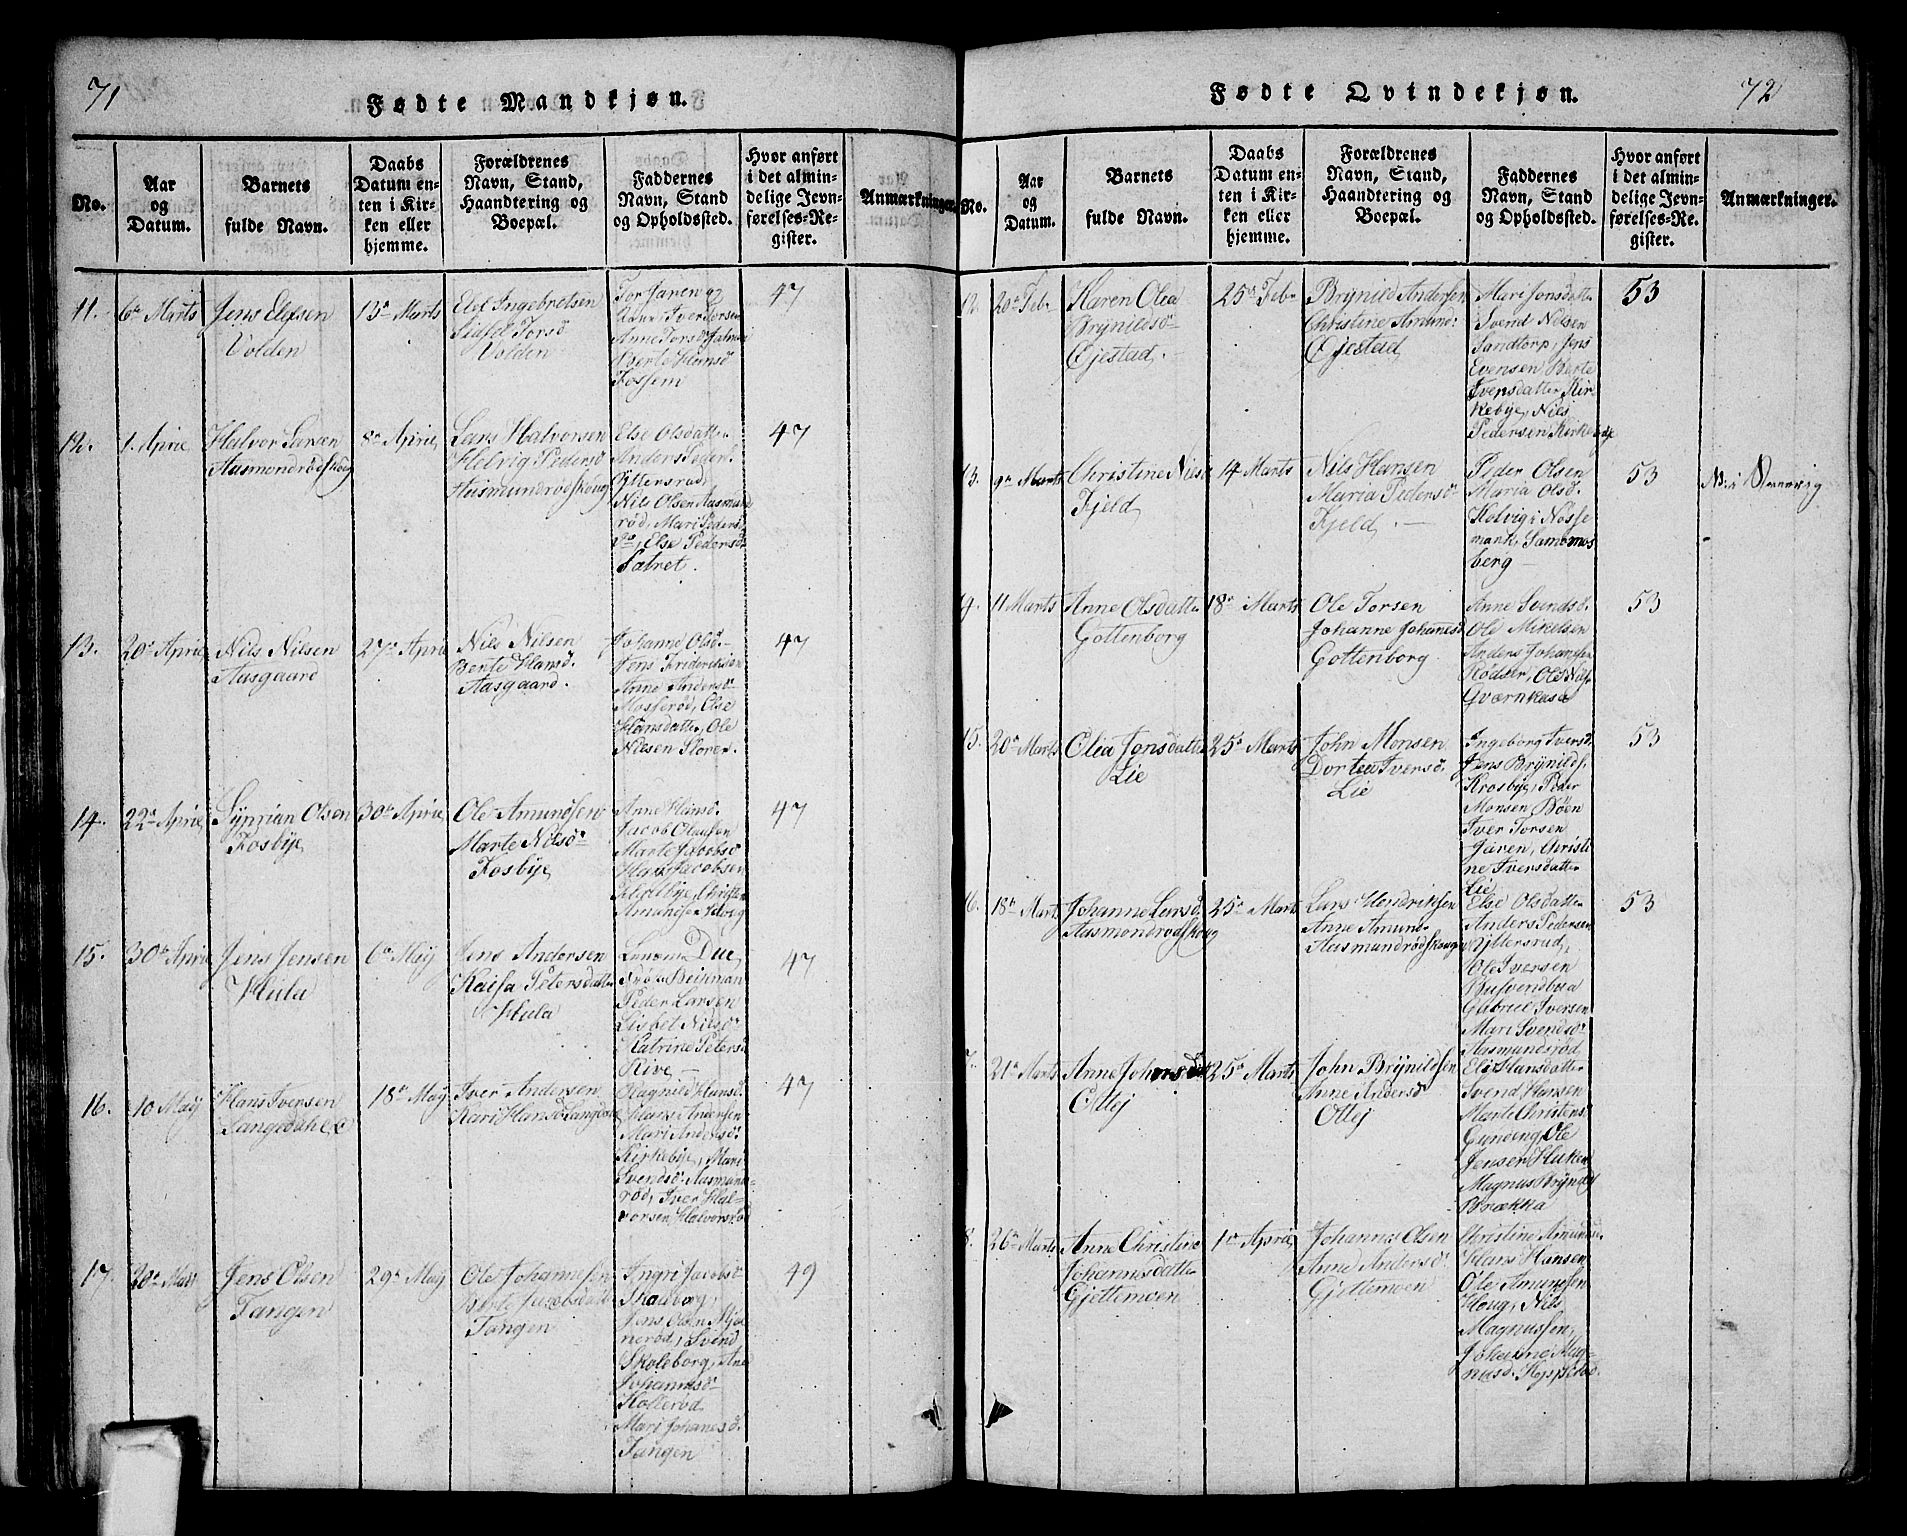 71
Fødte Mandkjøn.
No.
Aar
og
Datum.
Barnets
fulde Navn.
Daabs
Datum en-
ten i Kir-
ken eller
hjemme.
Forældrenes
Navn, Stand,
Haandtering og
Boepæl.
Faddernes
Navn, Stand
og Opholdssted.
Hvor anført
i det almin-
delige Jevn-
førelses-Re-
gister.
Anmærkninger.
11.
6te Marts
Jens Elefsen
Volden
13de Marts
Elef Ingebretsen
Torsd
Volden
Tor Jaren og
Iverdotsen
Anne Torsd Jahren
Berte Hansd
Fossem
47
12.
1. April
Halvor Larsen
Aasmondrødskoug
8de April
Lars Halvorsen
Helvig Pedersd
Aasmundrødskoug
Else Olsdatter
Anders Peder
Yttersrud
Nils Olsen Aasmund
rød, Mari Peders
do, Else Pedersd
Satret.
47
13.
20de April
Nils Nilsen
Aasgaard
27de April
Nils Nilsen
Bente Hansd.
Aasgaard.
Johanne Olsd.
Jens Frideriksen
Anne Andersd
Mosserød, Else
Hansdatter, Ole
Nilsen Store.
47
14.
22de April
Syprian Olsen
Fosbye
30te April
Ole Amundsen
Marte Nilsd
Fosbye
Anne Hansd.
Jacob Olausen
Marte Jacobsd
Hans Jacobsen
Christen
Amundsen Houg
47
15.
30te April
Jens Jensen
Hula
6te May
Jens Andersen
Kaisa Petersdatter
Hula
Due,
Beichman
Peder Larsen
Lisbet Nilsd
Katrine Petersd
Rive
47
16.
10 May
Hans Iversen
Langedahl
18de May
Iver Andersen
Kari Hansd Langdal
Olagnild Hansd.
Hans Andersen
Mari Andersd.
Kirkebye, Mari
Svendsd. Aasmund
rød, Iver Hal-
vorsen Halvorsrød
47
17.
20de May
Jens Olsen
Tangen
29de May
Ole Johannesen
Berte Jacobsdatter
Tangen
Ingri Jacobsd
Skaleborg,
Jens Olsen
nerød, Svend
Skoleborg, Ane
Johannesd
Hollerød
Mari Johanesd.
Tangen
49
72
Fødte Qvindekjøn.
No.
Aar
og
Datum.
Barnets
fulde Navn.
Daabs
Datum en-
ten i Kir-
ken eller
hjemme.
Forældrenes
Navn, Stand,
Haandtering og
Boepæl.
Faddernes
Navn, Stand
og Opholdssted.
Hvor anført
i det almin-
delige Jevn-
førelses-Re-
gister.
Anmærkninger.
12.
20de Feb
Karen Olea
Brynildsd
Ojestad.
25de Feb
Brynild Andersen
Christine Amund:
Ojestad
Mari Jonsdatter
Svend Nilsen
Sandtorp, Jens
Evensen Berte
Iversdatter Kir
kebye, Nils
Pedersen Kirkebye
53
13.
9de Marts
Christine Nilsd
Fjeld
14 Marts
Nils Hansen
Maria Pedersd
Fjeld.
Peder Olsen
Maria Olsd.
Kolvig i Nøsse
mark, Sammos
berg
53
14.
11 Marts
Anne Olsdatter
Gottenborg
18de Marts
Ole Torsen
Johanne Johanesd
Gottenborg
Anne Svendsd.
Ole Mikelsen
Anders Johansen
Rødser, Ole Nils
Qværnkase
53
15.
20de Marts
Olea Jonsdatter
Lie
25de Marts
John Monsen
Dortea Iversd.
Lie
Ingeborg Iversd.
Jens Brynilds.
Krosbye, Peder
Monsen Bøen
Iver Torsen
Jaren, Christi
ne Iversdatter
Lie
53
16.
18de Marts
Johanne Larsd.
Aasmondrødskoug
25de Marts
Lars Hendriksen
Anne Amund
Aasmundrødskoug
Else Olsdatter
Anders Pedersen
Yttersrud,
Ole Iversen
Busvendbua
Gabriel Iversen
Mari Svendsd
Aasmundsrød
53
7.
21de Marts
Anne Johnsdat
Ottej
25de Marts
John Brynildsen
Anne Andersd
Ottej
Eli Hansdatter
Svend Hansen
Marte Christens.
Gundeng, Ole
Jensen Huken
Magnus Bryn
Brækka
8.
26de Marts
Anne Christine
Johannsdatter
Gjettemoen
1ste April
Johannes Olsen
Anne Andersd
Gjettemoen
Christine Amundsd
Hans Hansen
Ole Amundsen
Houg, Nils
Magnussen,
Johanne Mag-
nusd.